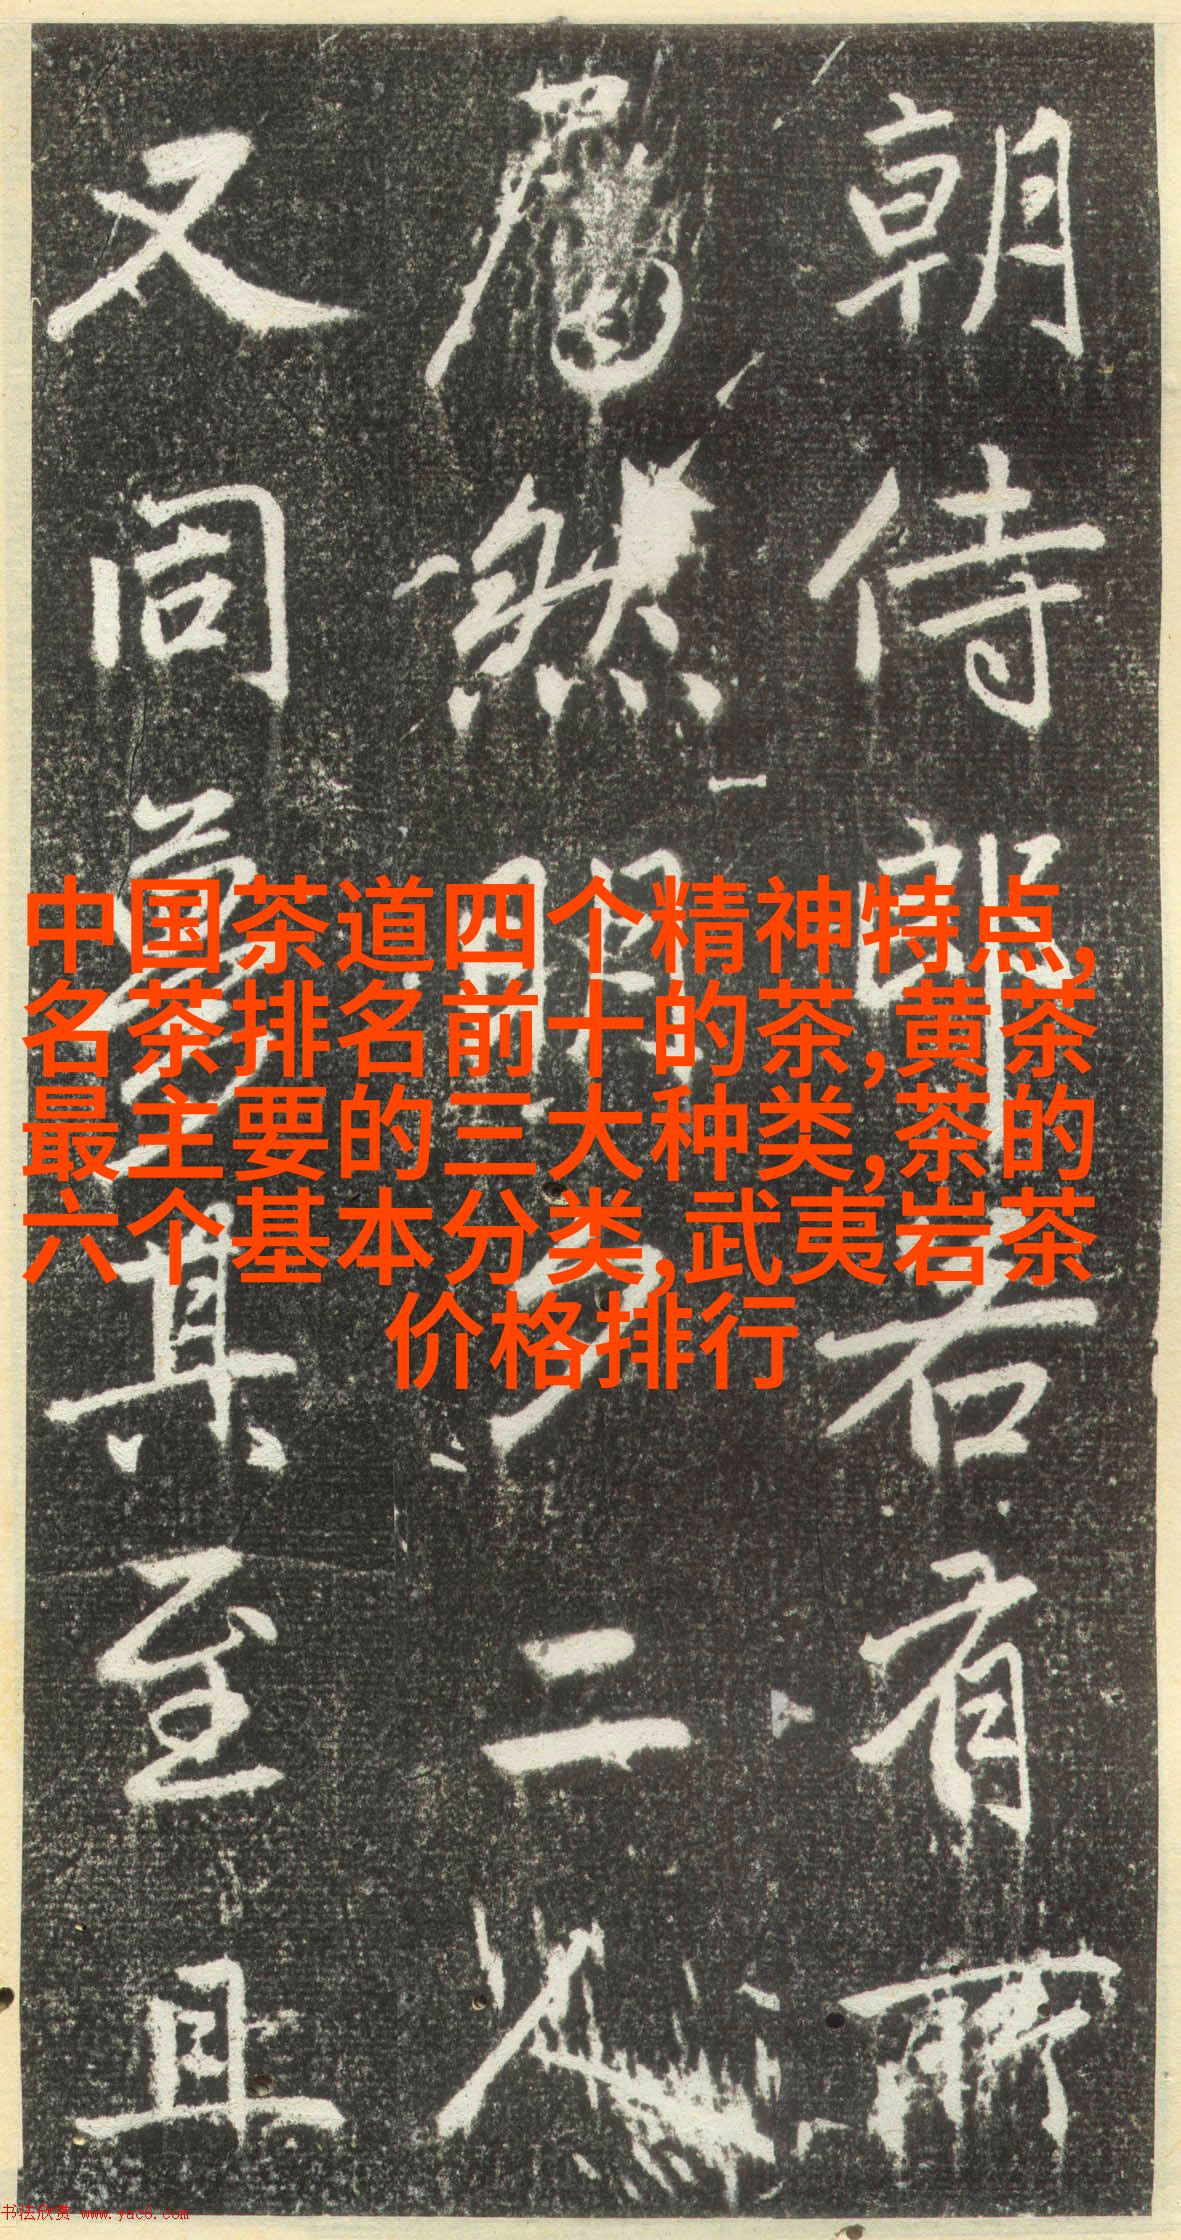 朝侍郎若有所
然明 二人
又同 其至且
中国茶道四个精神特点,
名茶排名前十的茶,黄茶
最主要的三大种类,茶的
六个基本分类,武夷岩茶
价格排行
书法欣赏 www.yac8.com